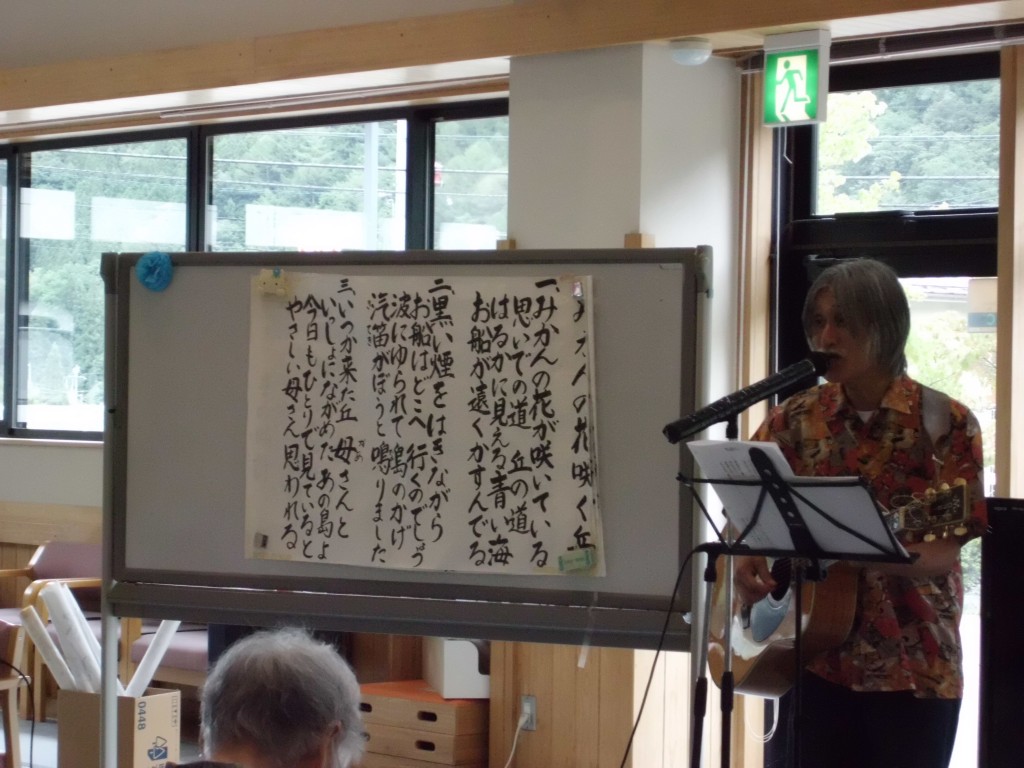 みかんの花咲く丘
一、みかんの花が咲いている
思いでの道 丘の道
はるかに見える青い海
お船が遠くかすんでる
二、黒い煙をはきながら
お船はどこへ 行くのでしょう
波にゆられて 島のかげ
汽笛がぼうと 鳴りました
三、いつか来た丘 母さんと
いっしょにながめた あの島よ
今日もひとりで見ていると
やさしい母さん 思われる
0448